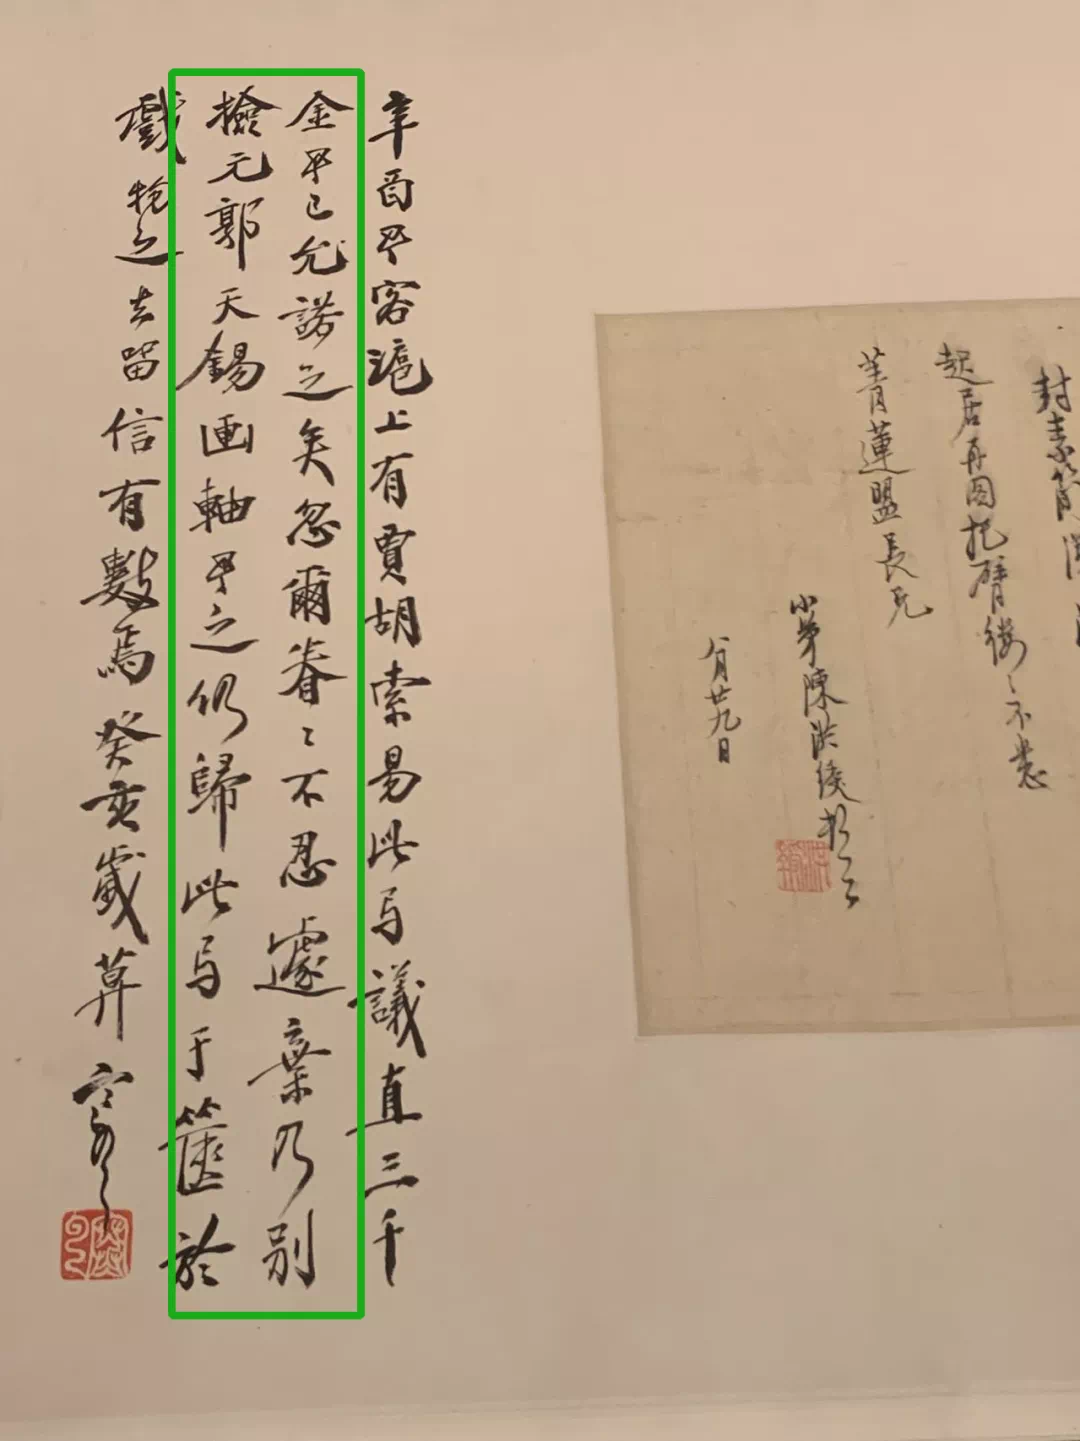 封素
起居再圖把臂縷〻不悉
菁蓮盟長兄
小弟陳洪綬
八月廿九日
辛酉予客滬上有賈胡索易此弓議直三千
金予已允諾之矣忽爾眷〻不忍遽棄乃別
撿元郭天錫画軸予之仍歸此弓于篋於
戲物之去留信有數焉癸亥歲莫